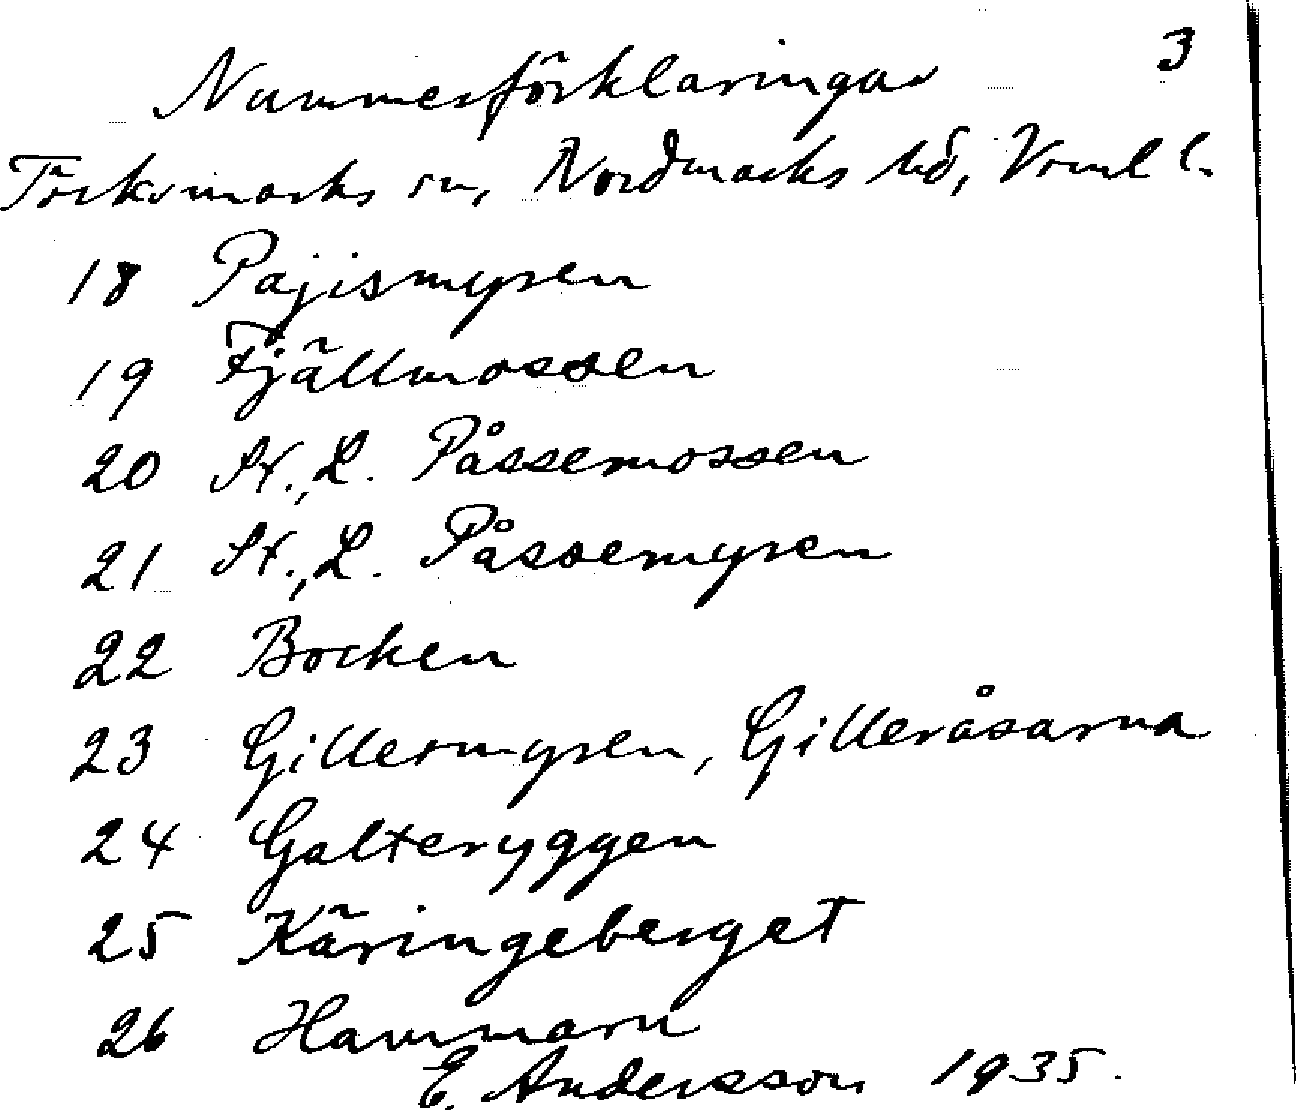 3
Nummerförklaringar
Torskmarks sn, Nordmarks hd, Vrml l.
18 Pajismyren
19 Fjällmossen
20 St., L. Påssemossen
21 St., L. Påssemyren
22 Bocken
23 Gillermyren, Gilleråsarna
24 Galteryggen
25 Käringeberget
26 Hammarn
E. Andersson 1935.